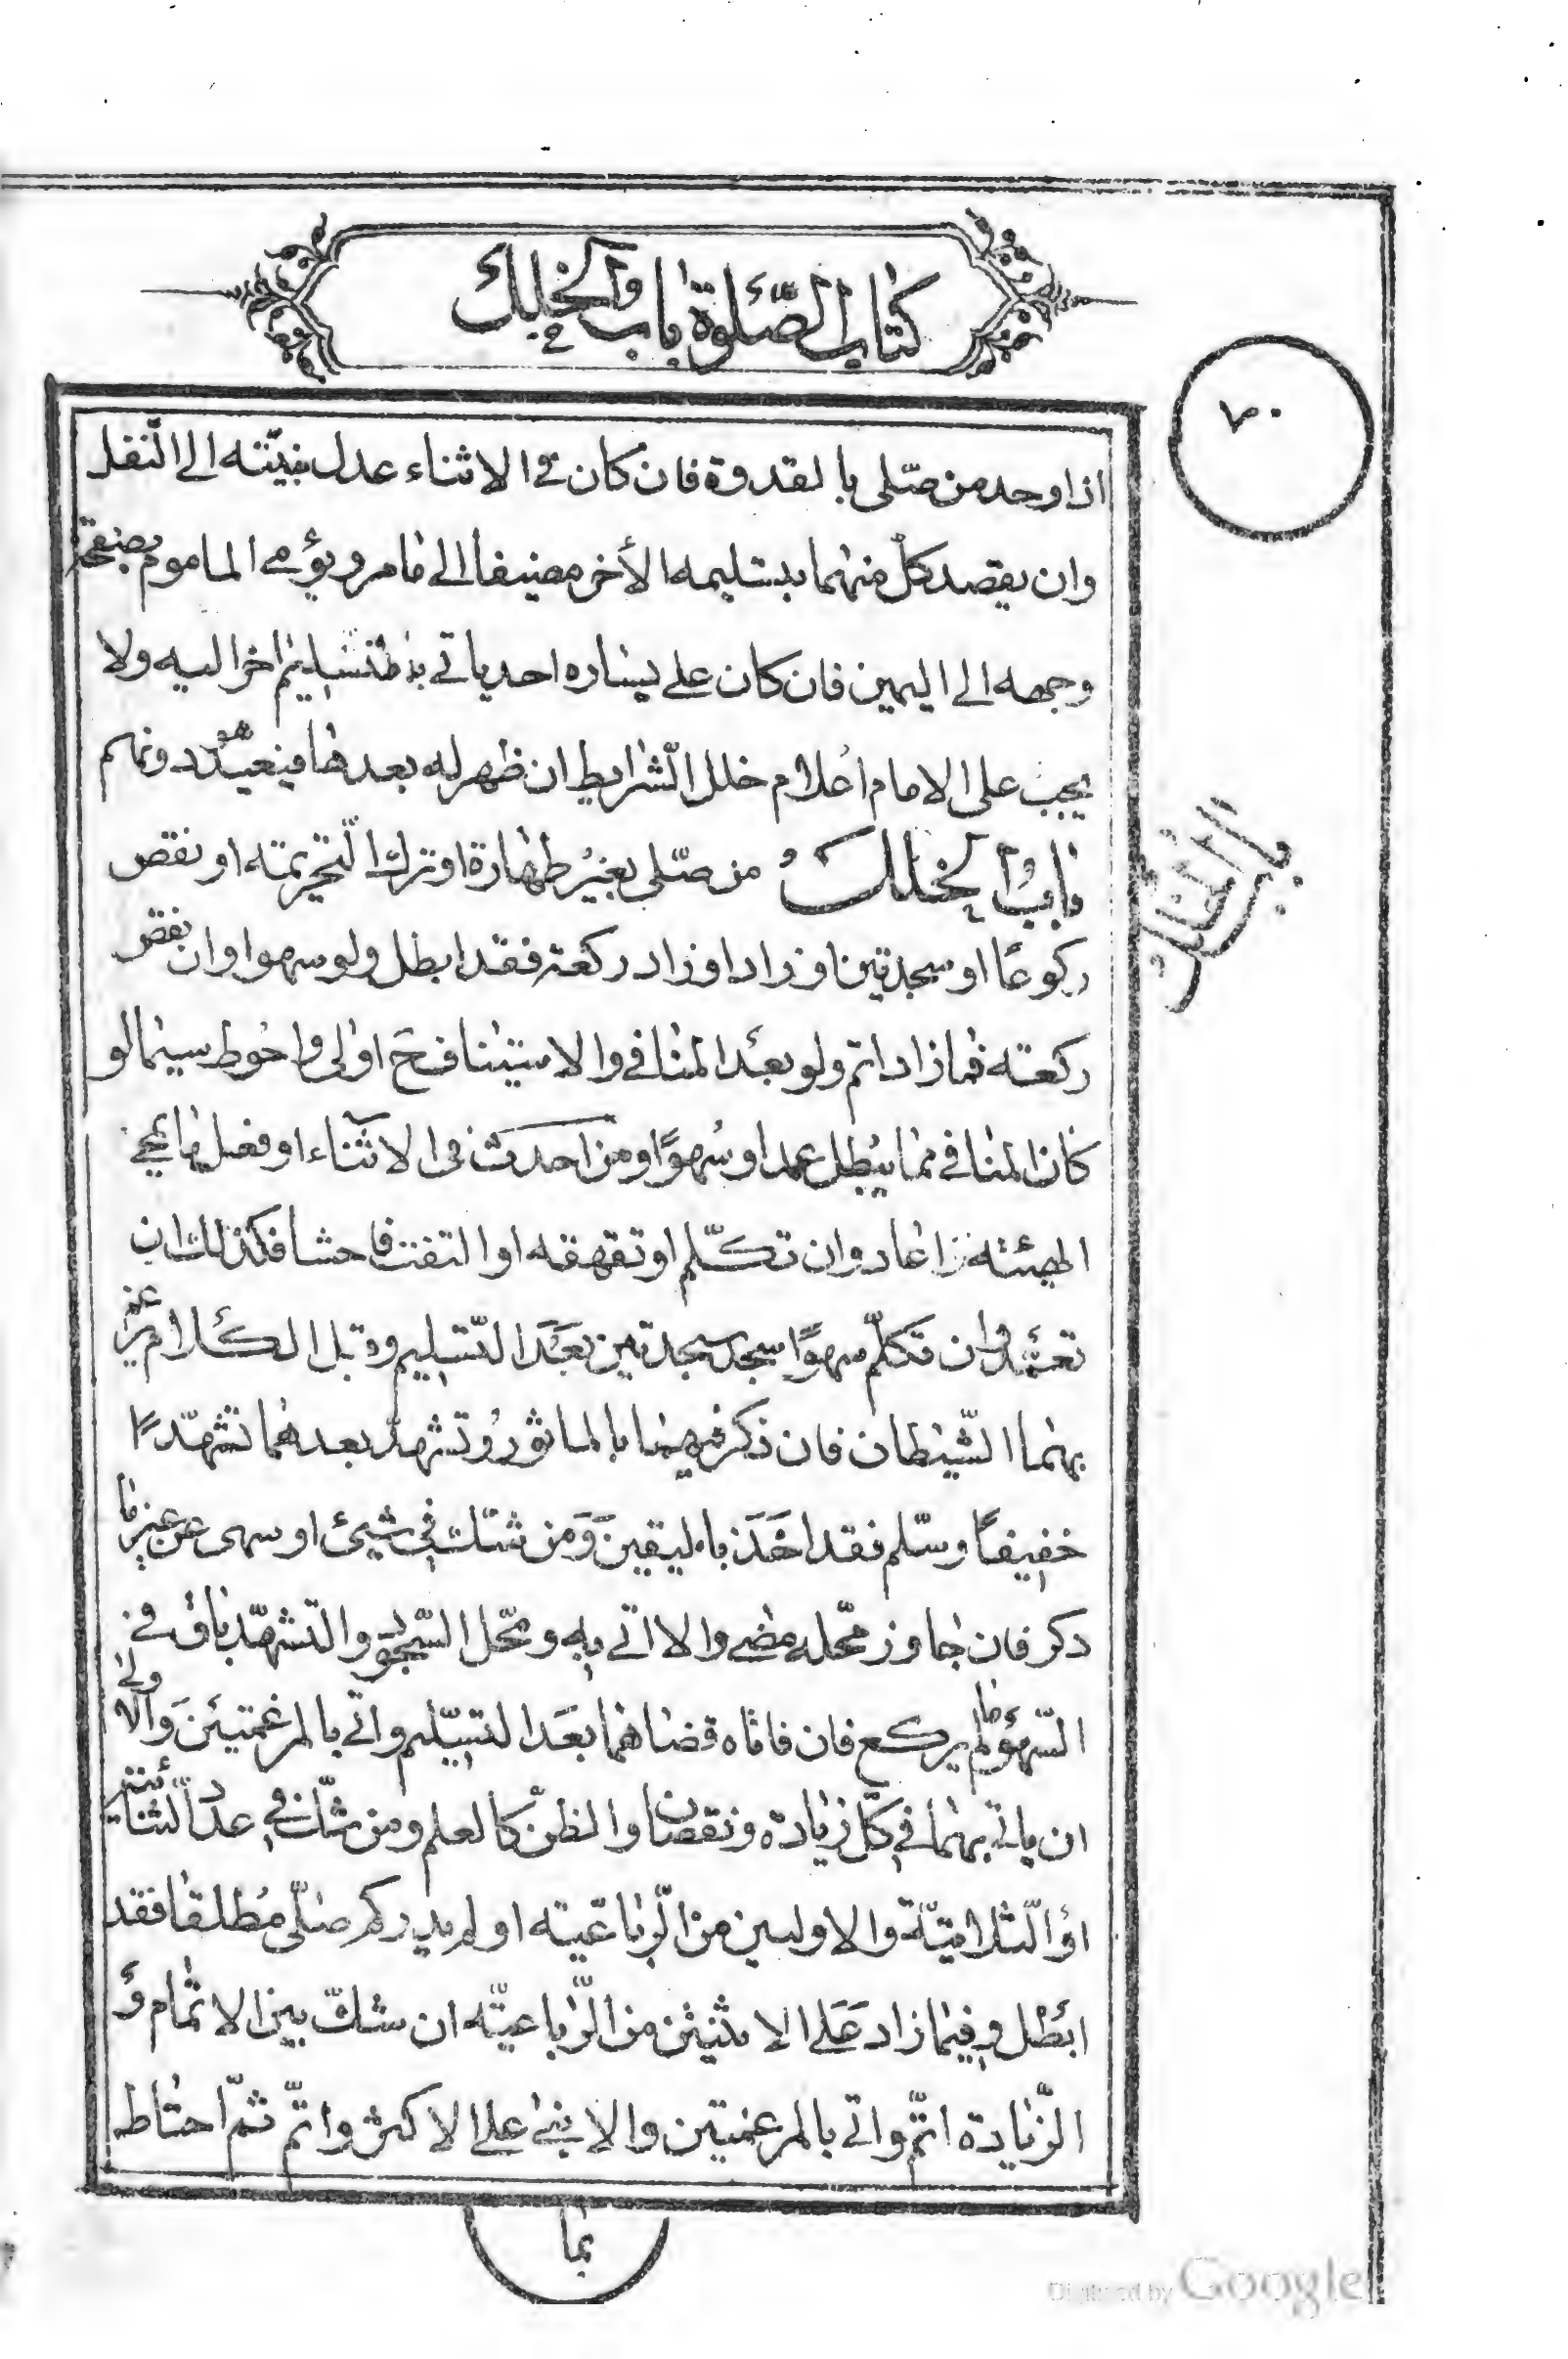 كتاب الصلوة باب في الخلل
٧٠
اذا وجد من صلى بالقدوة فان كان في الاثناء عدل بنيته الى النفل
وان يقصد كل منهما بتسليمه الأخر مضيفا الى مامر ويؤمي الماموم بصفحة
وجهه الى اليمين فان كان على يساره احد ياتي بتسليم اخر اليه ولا
يجب على الامام اعلام خلل الشرايط ان ظهر له بعدها فيعيد هو دونهم
باب الخلل من صلى بغير طهارة او ترك التحريمته او نقص
باب الخلل
ركوعًا او سجدتين او زاد او زاد ركعة فقد ابطل ولو سهوا وان نقص
ركعته فمازاد اتم ولو بعد المنافي والاستيناف ح اولى واحوط سيما لو
كان المنافي مما يبطل عمدا وسهوًا ومن احدث في الاثناء او فعل ماحي
الهيئته اعاد وان تكلم او تقهقه او التفت فاحشا فكذلك ان
تعمد وان تكلم سهوًا سجد سجدتين بعد التسليم وقبل الكلام يرغم
بهما الشيطان فان ذكر فيهما بالماثور وتشهد بعدهما تشهدًا
خفيفًا وسلم فقد اخذ باليقين ومن شك في شيئ او سهى عن غير ما
ذكر فان جاوز محله مضى والا اتى به ومحل السجود والتشهد باق في
السهو مالم يركع فان فاتاه قضاهما بعد التسليم واتى بالمرغمتين والاولى
ان ياتي بهما في كل زيادة ونقصان والظن كالعلم ومن شك في عدد الثنائية
او الثلاثية والاوليين من الرباعيته او لم يدر كم صلى مطلقا فقد
ابطل وفيما زاد على الاثنين من الرباعيته ان شك بين الاتمام و
الزيادة اتم واتى بالمرغمتين والا بنى على الاكثر واتم ثم احتاط
بما
Digitized by Google